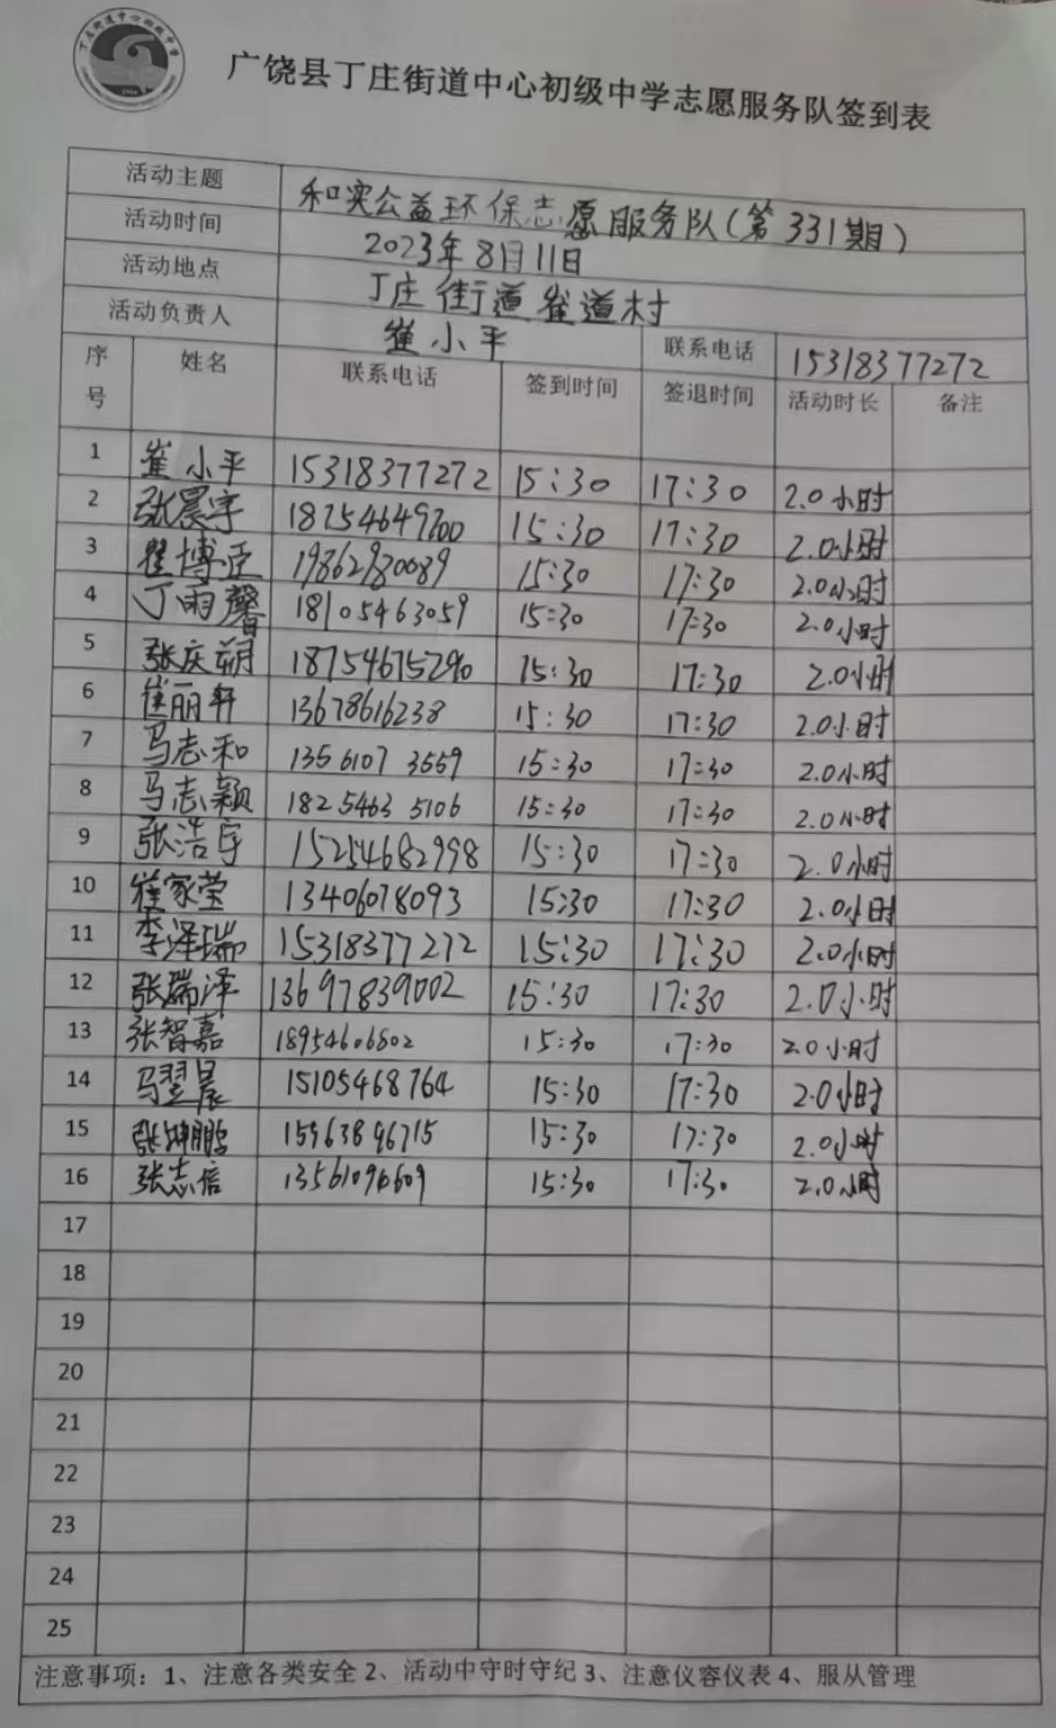 广饶县丁庄街道中心初级中学志愿服务队签到表
活动主题 和实公益环保志愿服务队(第331期)
活动时间 2023年8月11日
活动地点 丁庄街道崔道村
活动负责人 崔小平 联系电话 15318377272
序号 姓名 联系电话 签到时间 签退时间 活动时长 备注
1 崔小平 15318377272 15:30 17:30 2.0小时
2 张晨宇 15:30 17:30 2.0小时
3 崔博臣 15:30 17:30 2.0小时
4 丁雨馨 18105463059 15:30 17:30 2.0小时
5 张庆朔 15:30 17:30 2.0小时
6 崔丽轩 13678616238 15:30 17:30 2.0小时
7 马志和 1356107 3559 15:30 17:30 2.0小时
8 马志颖 1825463 5106 15:30 17:30 2.0小时
9 张浩宇 15254682998 15:30 17:30 2.0小时
10 崔家莹 13406078093 15:30 17:30 2.0小时
11 李泽瑞 15318377272 15:30 17:30 2.0小时
12 张瑞泽 13697839002 15:30 17:30 2.0小时
13 张智嘉 18954606802 15:30 17:30 2.0小时
14 马翌晨 15105468764 15:30 17:30 2.0小时
15 张坤鹏 15963896715 15:30 17:30 2.0小时
16 张志信 13561096609 15:30 17:30 2.0小时
17
18
19
20
21
22
23
24
25
注意事项：1、注意各类安全 2、活动中守时守纪 3、注意仪容仪表 4、服从管理